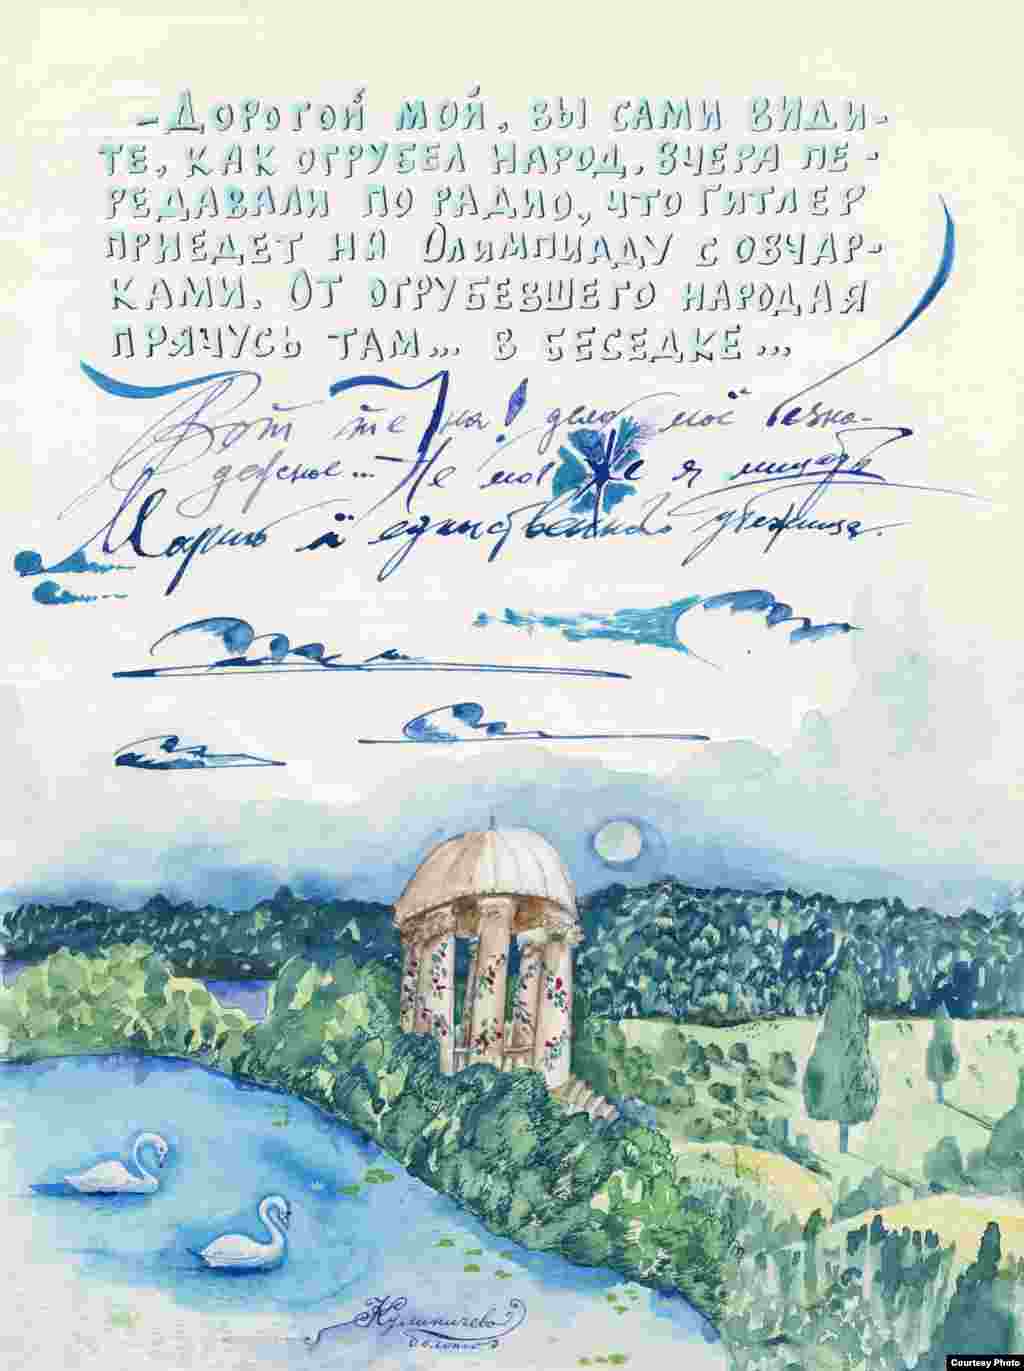 – Дорогой мой, вы сами види-
те, как огрубел народ. Вчера пе-
редавали по радио, что Гитлер
приедет на Олимпиаду с овчар-
ками. От огрубевшего народая
прячусь там... в беседке...
Вот те на! дело моё безна-
дежное... Не мог же я лишать
Марию её единственного
Куликичево
болото
Courtesy Photo